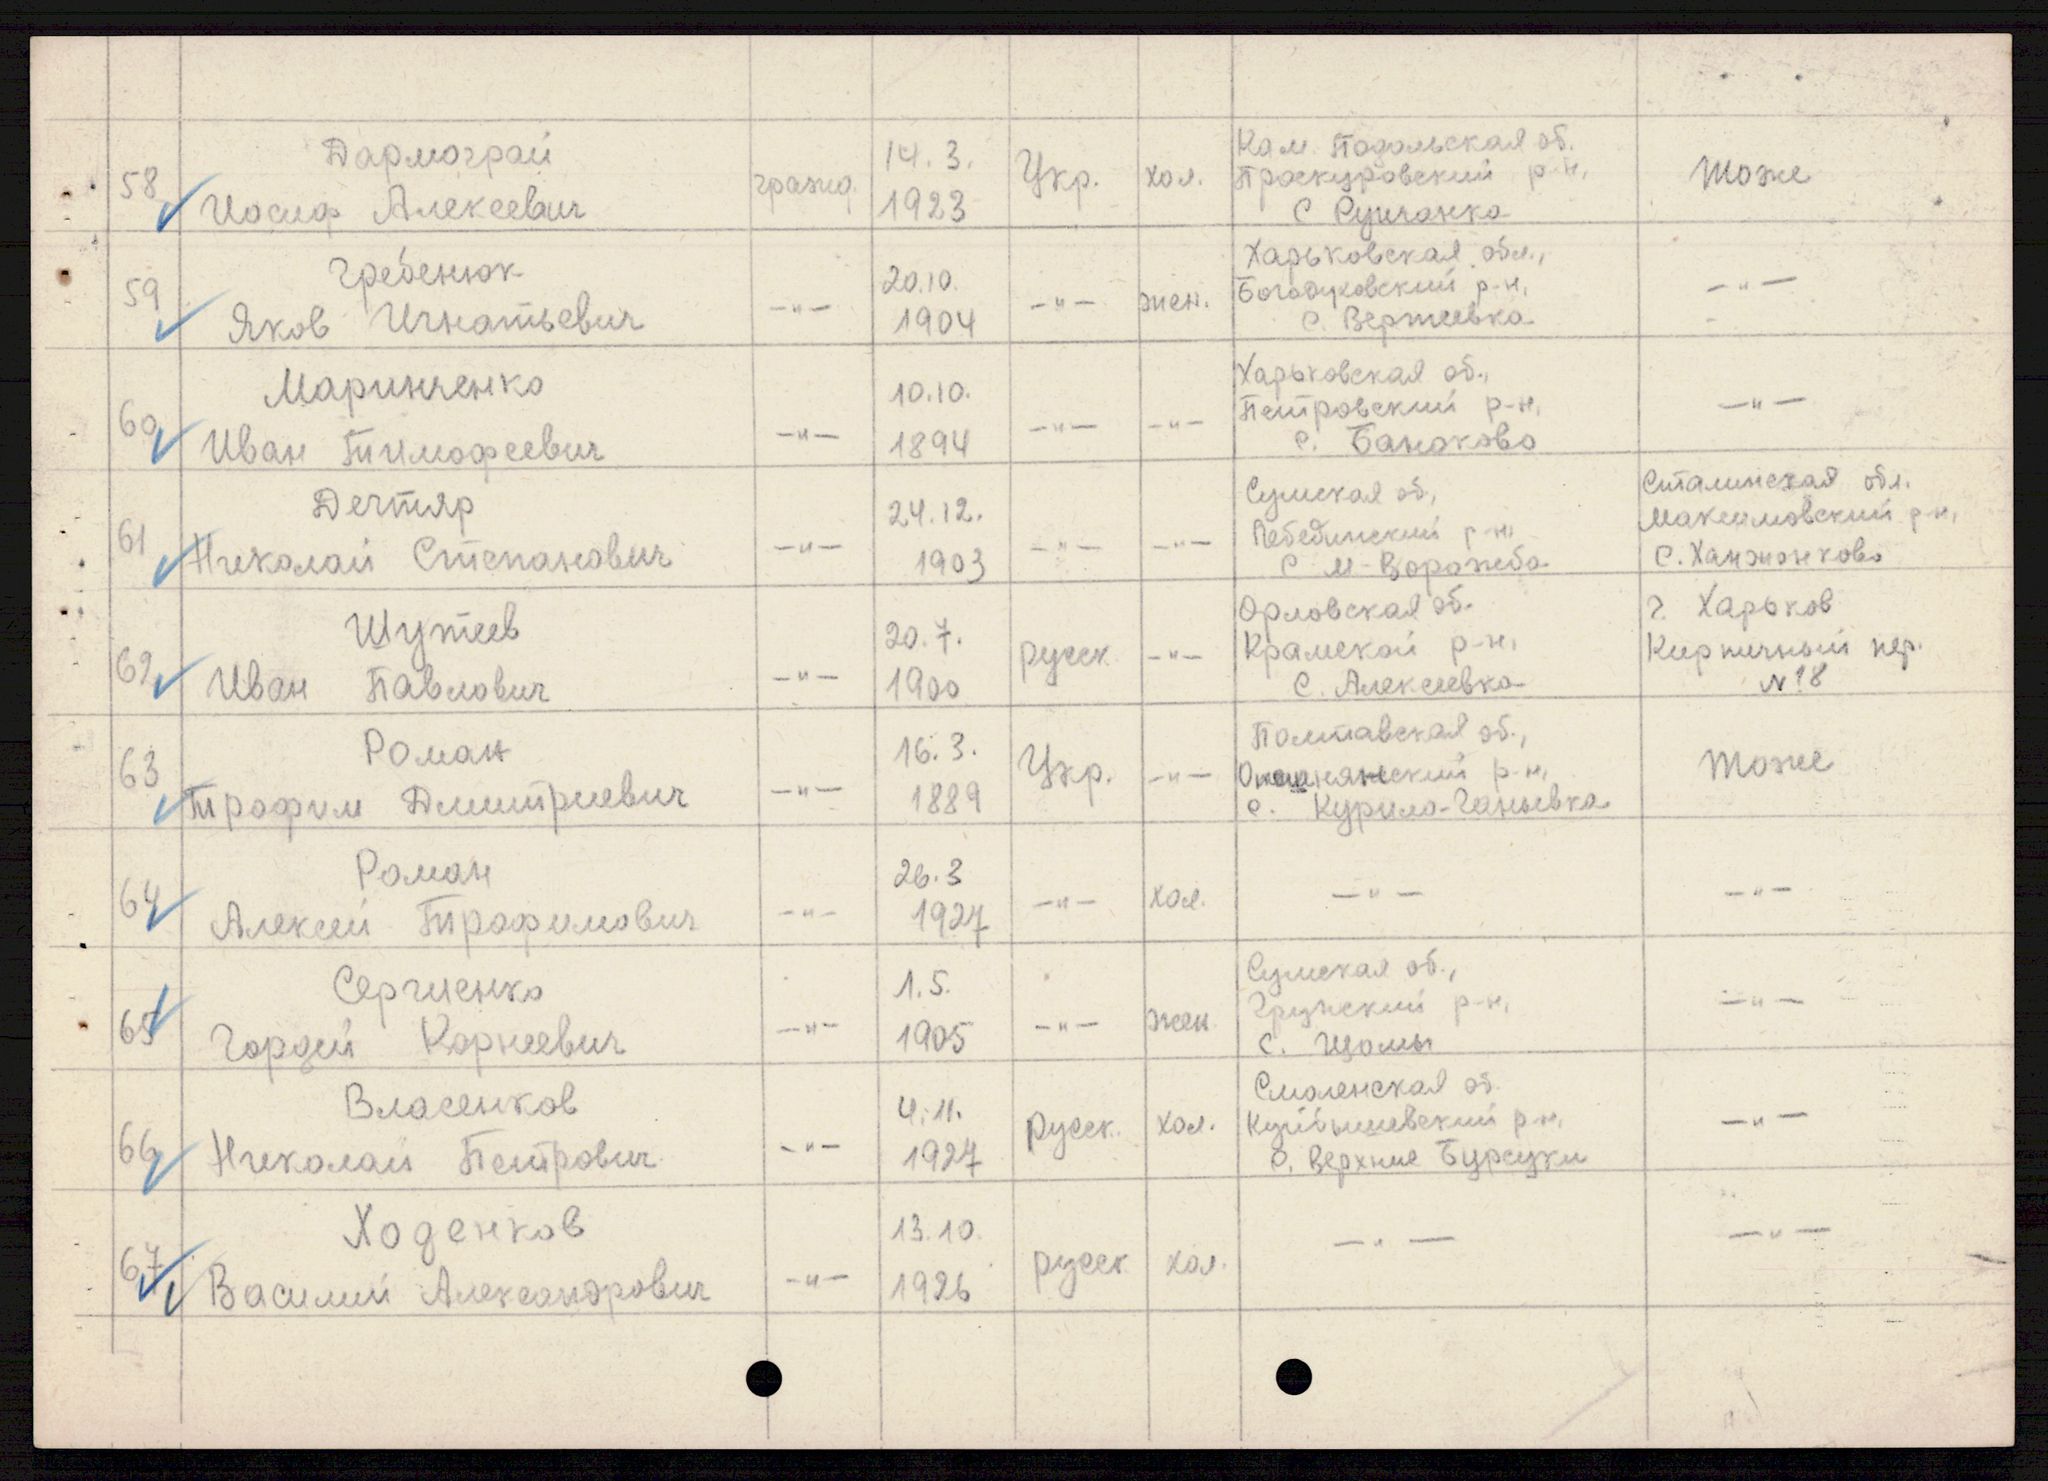 58 Дармограй
Иосиф Алексеевич гражд. 14.3.1923 Укр. хол. Кам. Подольская об. Проскуровский р-н, с тоже
59 Гребенюк
Яков Игнатьевич —"— 20.10.1904 —"— жен. Харьковская обл., Богодуховский р-н, с. Вертеевка —"—
60 Маринченко
Иван Тимофеевич —"— 10.10.1894 —"— —"— Харьковская об., Петровский р-н, с. —"—
61 Дегтяр
Николай Степанович —"— 24.12.1903 —"— —"— Сумская об, Лебединский р-н, с М-Ворожба Сталинская обл. Максимовский р-н, с. Ханжонково
62 Шутеев
Иван Павлович —"— 20.7.1900 русск —"— Орловская об. Крамской р-н, с. Алексеевка г Харьков Кирпичный пер. №18
63 Роман
Трофим Дмитриевич —"— 16.3.1889 Укр. —"— Полтавская об., р-н, с. Курило-Ганьевка тоже
64 Роман
Алексей Трофимович —"— 26.3 1927 —"— хол. —"— —"—
65 Сергиенко
Гордей Корнеевич —"— 1.5.1905 —"— жен. Сумская об., Грунский р-н, с. Щомы —"—
66 Власенков
Николай Петрович —"— 4.11.1927 русск. хол. Смоленская об. Куйбышевский р-н, с. Верхние Бурсуки —"—
67 Ходенков
Василий Александрович —"— 13.10.1926 русск хол. —"— —"—